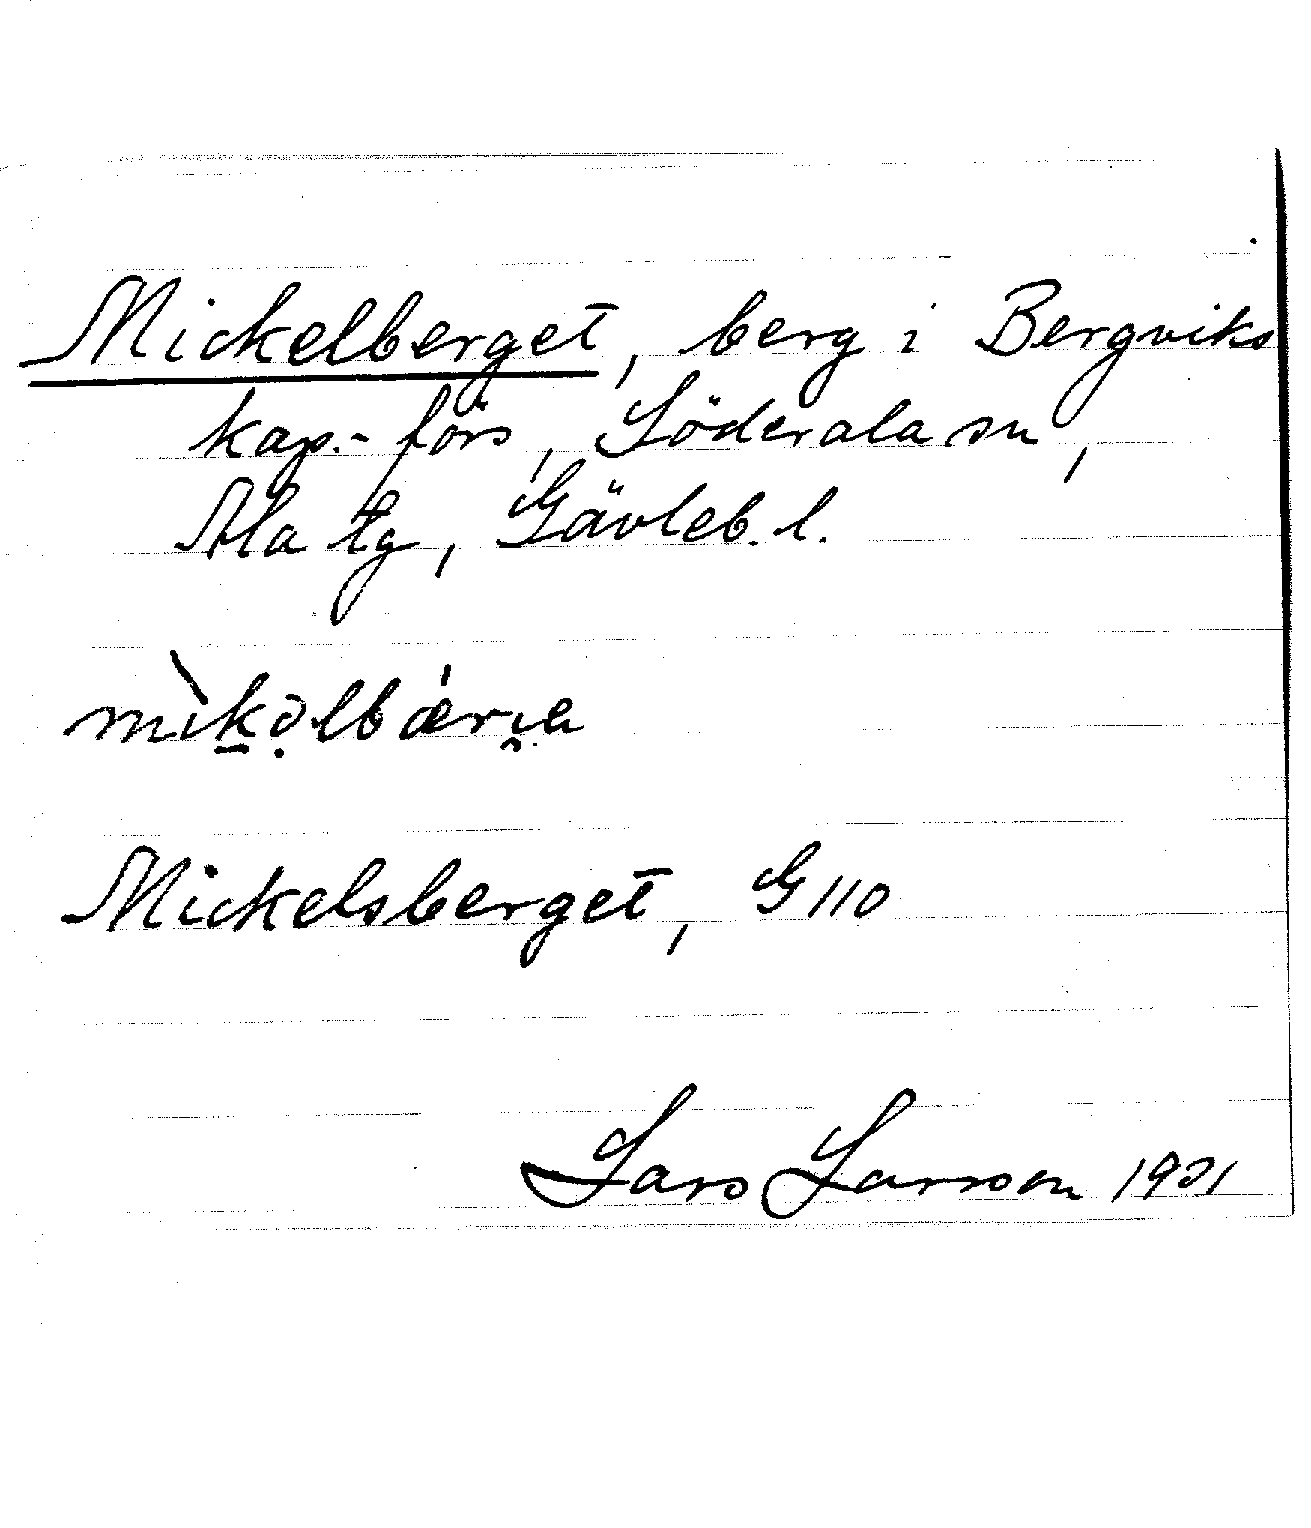 Mickelberget, berg i Bergviks
kap.-förs, Söderala sn,
Ala tg, Gävleb. l.
mìk̠ə̣lbǽri̯a
Mickelsberget, G 110
Lars Larsson 1931